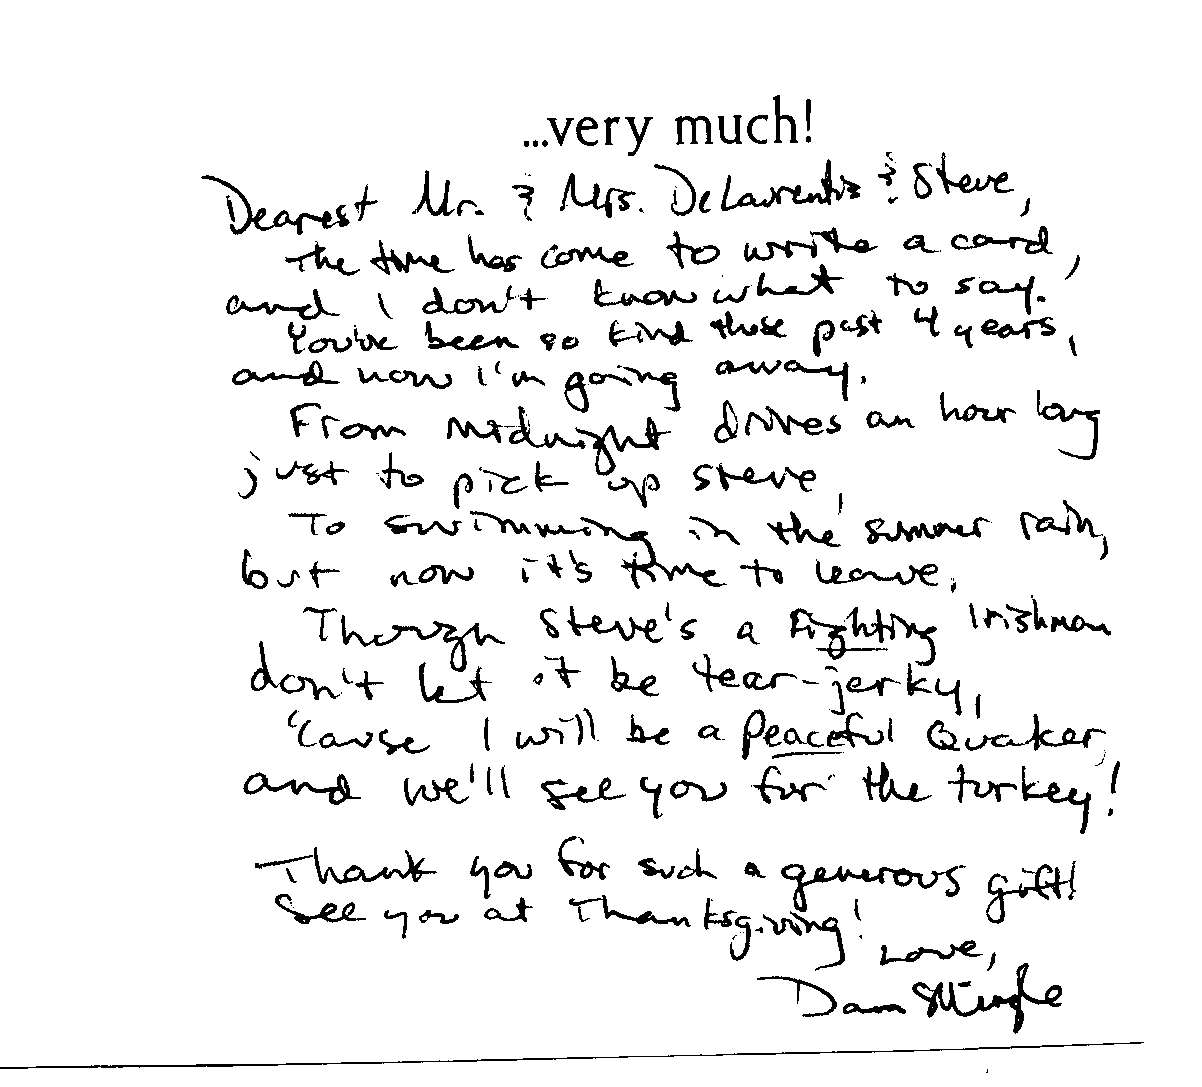 ...very much!
Dearest Mr. & Mrs. DeLaurentis & Steve,
The time has come to write a card,
and I don't know what to say.
You've been so kind these past 4 years,
and now I'm going away.
From midnight drives an hour long
just to pick up Steve,
To swimming in the summer rain,
but now it's time to leave.
Though Steve's a Fighting Irishman
don't let it be tear-jerky,
'Cause I will be a Peaceful Quaker,
and we'll see you for the turkey!
Thank you for such a generous gift!
See you at Thanksgiving!
Love,
Dan